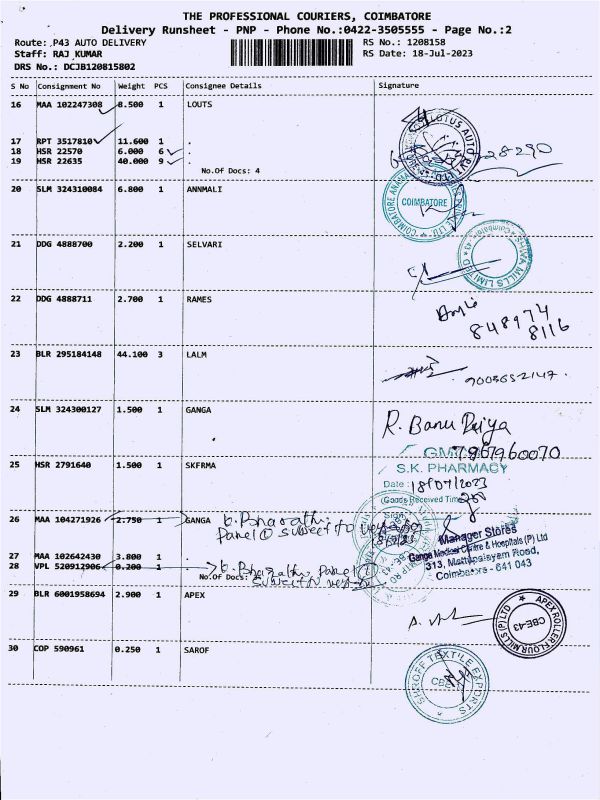 THE PROFESSIONAL COURIERS, COIMBATORE
Delivery Runsheet - PNP - Phone No.:0422-3505555 - Page No.:2
Route: P43 AUTO DELIVERY RS No.: 1208158
Staff: RAJ KUMAR RS Date: 18-Jul-2023
DRS No.: DCJB120815802
S No Consignment No Weight PCS Consignee Details Signature
16 MAA 102247308 8.500 1 LOUTS
17 RPT 3517810 11.600 1 .
18 HSR 22570 6.000 6 .
19 HSR 22635 40.000 9 .
No.Of Docs: 4
20 SLM 324310084 6.800 1 ANNMALI
COIMBATORE
21 DDG 4888700 2.200 1 SELVARI
22 DDG 4888711 2.700 1 RAMES
848974
8116
23 BLR 295184148 44.100 3 LALM
9003652147.
24 SLM 324300127 1.500 1 GANGA
R. Banu Priya
7867960070
25 HSR 2791640 1.500 1 SKFRMA
S.K. PHARMACY
Date : 18/07/2023
(Goods Received Time)
Sign
26 MAA 104271926 2.750 1 GANGA
b. Bharathi
Panel ① subject to
Manager Stores
Ganga Medical Centre & Hospitals (P) Ltd
313, Mettupalayam Road,
Coimbatore - 641 043
27 MAA 102642430 3.800 1 .
28 VPL 520912906 0.200 1
b. Bharathi Panel ①
No.Of Docs:
subject to
29 BLR 6001958694 2.900 1 APEX
APEX ROLLER FLOUR MILLS (P) LTD
CBE-43
30 COP 590961 0.250 1 SAROF
SHROFF TEXTILE EXPORTS